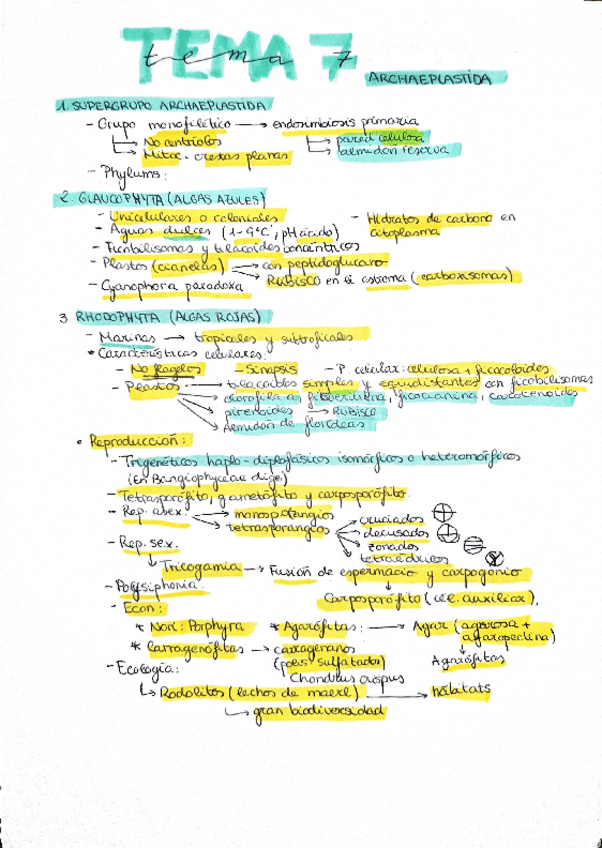 TEMA 7
tema 7
ARCHAEPLASTIDA
1. SUPERGRUPO ARCHAEPLASTIDA
- Grupo monofilético → endosimbiosis primaria
→ No centriolos → pared celulosa
→ Mitoc. crestas planas → almidón reserva
- Phylums:
2. GLAUCOPHYTA (ALGAS AZULES)
- Unicelulares o coloniales - Hidratos de carbono en
- Aguas dulces (1-9°C, pH ácido) citoplasma
- Ficobilisomas y tilacoides concéntricos
- Plastos (cianelas) → con peptidoglucano
→ RUBISCO en el estroma (carboxisomas)
- Cyanophora paradoxa
3 RHODOPHYTA (ALGAS ROJAS)
- Marinas → tropicales y subtropicales
• Características celulares:
- No flagelos - Sinapsis - P. celular: celulosa + ficocoloides
- Plastos → tilacoides simples y equidistantes con ficobilisomas
→ clorofila a, ficoeritrina, ficocianina, carotenoides
→ pirenoides → RUBISCO
→ Almidón de florideas
• Reproducción:
- Trigenéticos haplo-diplofásicos isomórficos o heteromórficos
(En Bangiophyceae dige)
- Tetrasporófito, gametófito y carposporófito.
- Rep. asex. → monosporangios
→ tetrasporangios → cruciados
→ decusados
→ zonados
→ tetraédricos
- Rep. sex.
↓ Tricogamia → Fusión de espermacio y carpogonio
- Polysiphonia: ↓
Carposporófito (cél. auxiliar),
- Econ:
* Nori: Porphyra * Agarófitas: → Agar (agarosa +
agaropectina)
* Carragenófitas → carragenanos ↓
(polis. sulfatado) Agarófitas
Chondrus crispus
- Ecología:
↳ Rodolitos (lechos de maerl) → hábitats
↳ gran biodiversidad